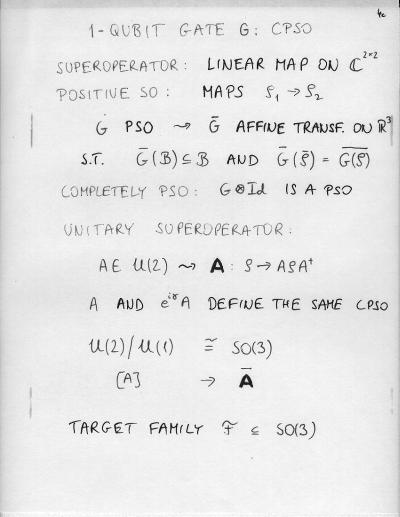 4c
1-QUBIT GATE G: CPSO
SUPEROPERATOR: LINEAR MAP ON ℂ²ˣ²
POSITIVE SO: MAPS ρ₁ → ρ₂
G PSO ⤳ G̅ AFFINE TRANSF. ON ℝ³
S.T. G̅(B) ⊆ B AND G̅(ρ̅) = \overline{G(ρ)}
COMPLETELY PSO: G⊗Id IS A PSO
UNITARY SUPEROPERATOR:
A ∈ U(2) ⤳ 𝐀: ρ → AρA†
A AND e^{iγ}A DEFINE THE SAME CPSO
U(2)/U(1) ≅ SO(3)
[A] → 𝐀̅
TARGET FAMILY ℱ ⊆ SO(3)